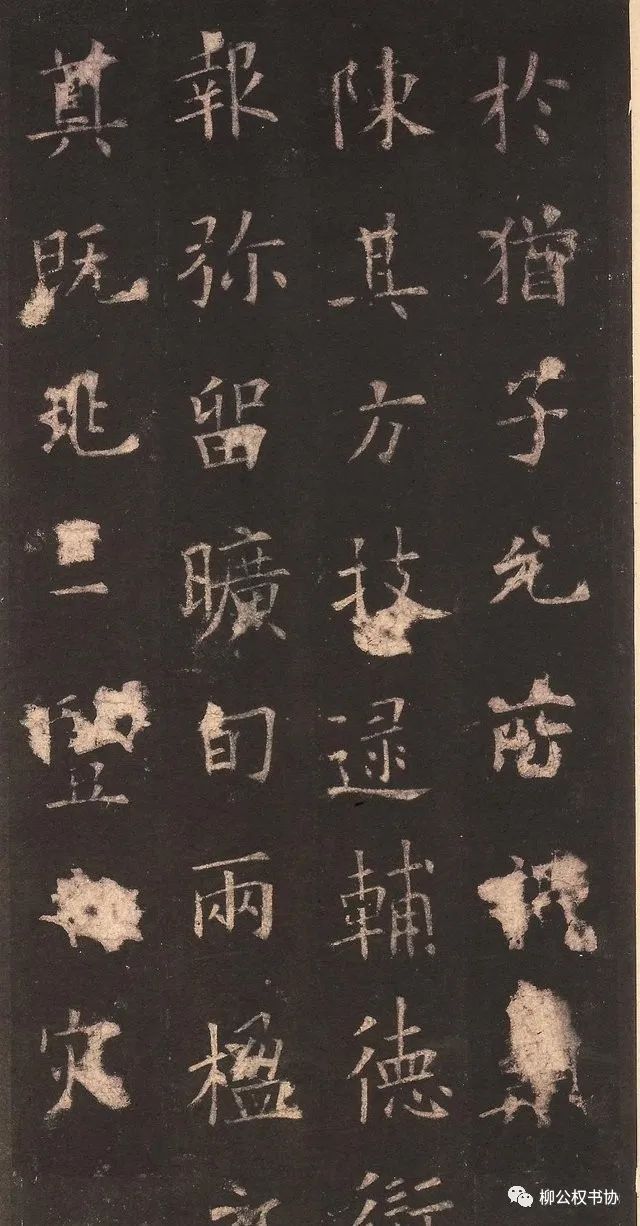 於猶子允
陳其方技逯輔德
報弥留曠旬兩楹
奠既兆二豎灾
柳公权书协